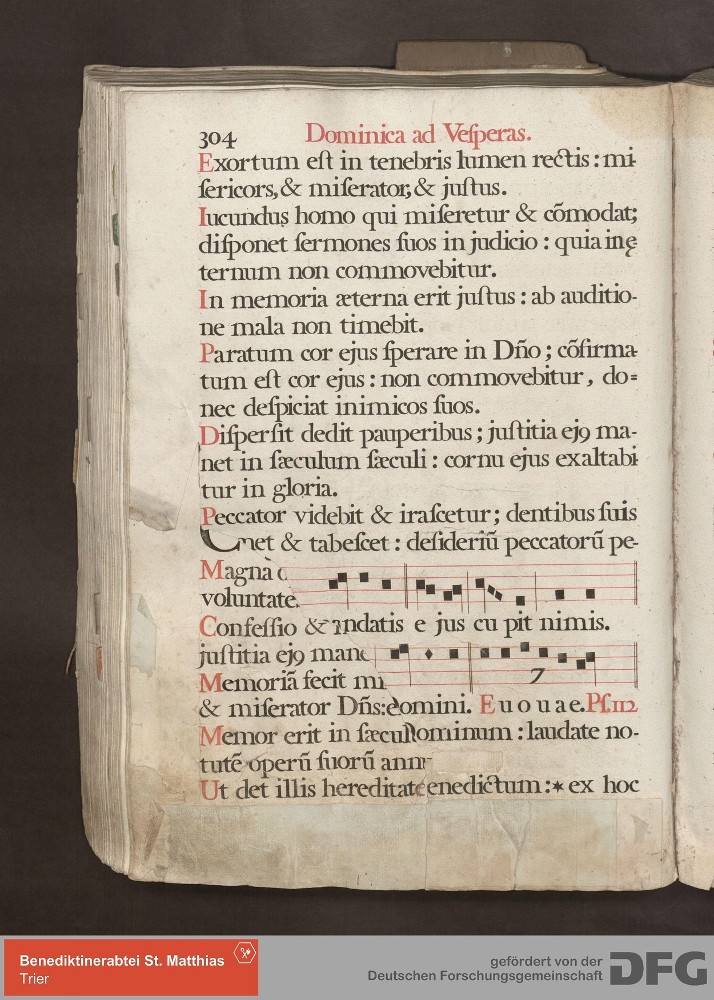 304 Dominica ad Veſperas.
Exortum eſt in tenebris lumen rectis: mi-
ſericors, & miſerator, & juſtus.
Iucundus homo qui miſeretur & cõmodat;
diſponet ſermones ſuos in judicio: quia in ę
ternum non commovebitur.
In memoria æterna erit juſtus: ab auditio-
ne mala non timebit.
Paratum cor ejus ſperare in Dño; cõfirma-
tum eſt cor ejus: non commovebitur, do=
nec deſpiciat inimicos ſuos.
Diſperſit dedit pauperibus; juſtitia ej9 ma-
net in ſæculum ſæculi: cornu ejus exaltabi-
tur in gloria.
Peccator videbit & iraſcetur; dentibus ſuis
met & tabeſcet: deſideriũ peccatorũ pe-
Magna
voluntate
Confeſſio & ndatis e jus cu pit nimis.
juſtitia ej9 mane
Memoriã fecit mi
& miſerator Dñs: domini. E u o u a e. Pſ. 112
Memor erit in ſæcul ominum: laudate no-
tutẽ operũ ſuorũ ann
Ut det illis hereditate enedictum: * ex hoc
Benediktinerabtei St. Matthias
Trier
gefördert von der
Deutschen Forschungsgemeinschaft
DFG